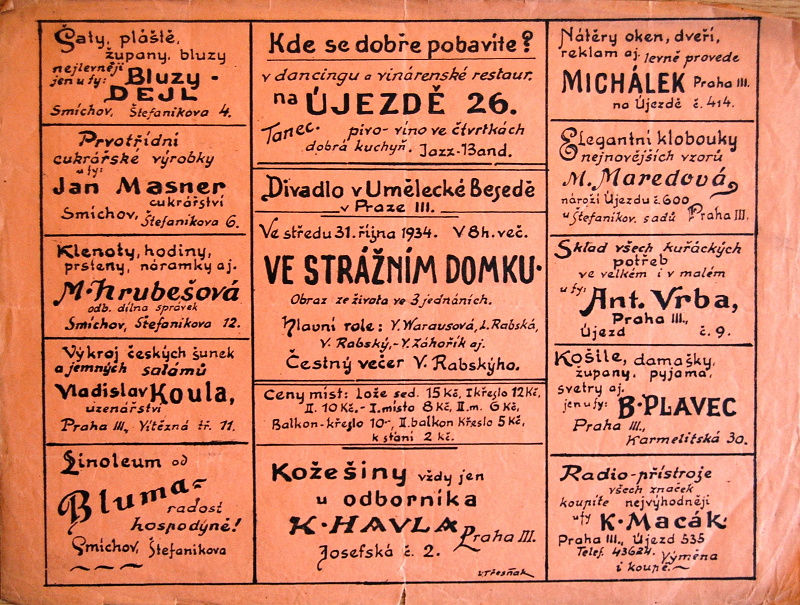 Šaty, pláště,
župany, bluzy
nejlevněji
jen u fy: Bluzy -
DEJL
Smíchov, Štefanikova 4.
Prvotřídní
cukrářské výrobky
u fy:
Jan Masner
cukrářství
Smíchov, Štefanikova 6.
Klenoty, hodiny,
prsteny, náramky aj.
M. Hrubešová
odb. dílna správek
Smíchov, Štefanikova 12.
Výkroj českých šunek
a jemných salámů
Vladislav Koula,
uzenářství
Praha III, Vítězná tř. 11.
Linoleum od
Bluma-
radost
hospodyně!
Smíchov, Štefanikova
Kde se dobře pobavíte?
v dancingu a vinárenské restaur.
na ÚJEZDĚ 26.
Tanec. pivo-víno ve čtvrtkách
dobrá kuchyň. Jazz-Band.
Divadlo v Umělecké Besedě
v Praze III.
Ve středu 31. října 1934. V 8 h. več.
VE STRÁŽNÍM DOMKU.
Obraz ze života ve 3 jednáních.
Hlavní role: V. Warausová, L. Rabská,
V. Rabský,- V. Záhořík aj.
Čestný večer V. Rabského.
Ceny míst: Lože sed. 15 Kč, I křeslo 12 Kč,
II. 10 Kč.- I. místo 8 Kč, II. m. 6 Kč,
Balkon-křeslo 10-, II. balkon křeslo 5 Kč,
k stání 2 Kč.
Kožešiny vždy jen
u odborníka
K. HAVLA, Praha III.
Josefská č. 2.
V. Třešňák
Nátěry oken, dveří,
reklam aj. levně provede
MICHÁLEK Praha III.
na Újezdě č. 414.
Elegantní klobouky
nejnovějších vzorů
M. Maredová,
nároží Újezdu č. 600
u Štefanikov. sadů Praha III.
Sklad všech kuřáckých
potřeb
ve velkém i v malém
u fy:
Ant. Vrba,
Praha III.,
Újezd č. 9.
Košile, damašky,
župany, pyjama,
svetry aj.
jen u fy: B. PLAVEC
Praha III.,
Karmelitská 30.
Radio-přístroje
všech značek
koupíte nejvýhodněji
u fy K. Macák
Praha III., Újezd 535
Telef. 43624. Výměna
i koupě.